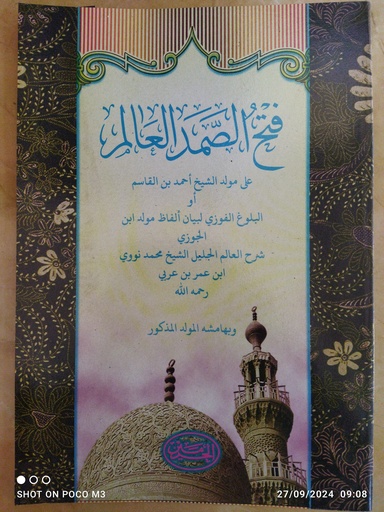 فتح الصمد العالم
على مولد الشيخ أحمد بن القاسم
أو
البلوغ الفوزي لبيان ألفاظ مولد ابن
الجوزي
شرح العالم الجليل الشيخ محمد نووي
ابن عمر بن عربي
رحمه الله
وبهامشه المولد المذكور
الحرمين
SHOT ON POCO M3
27/09/2024 09:08